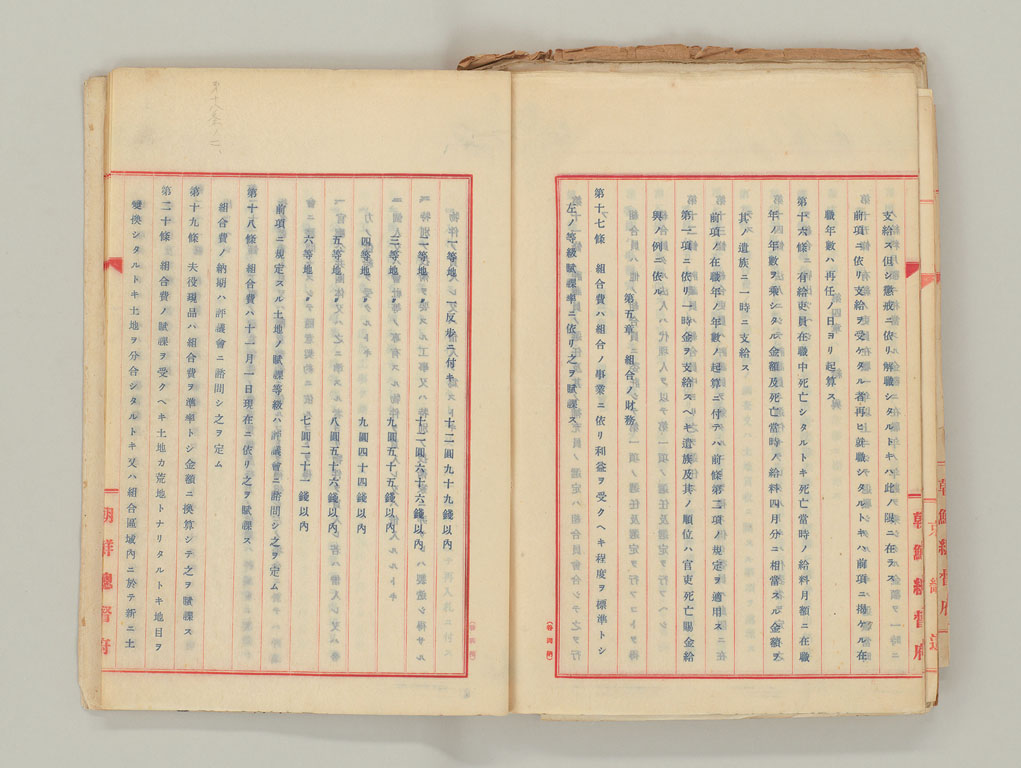 支給ス但シ懲戒ニ依リ解職シタルトキハ此ノ限ニ在ラス
前項ニ依リ支給ヲ受ケタル者再ヒ就職シタルトキハ前項ニ揭ケル在
職年數ハ再任ノ日ヨリ起算ス
第十六條 有給吏員在職中死亡シタルトキ死亡當時ノ給料月額ニ在職
年ノ年數ヲ乘シタル金額及死亡當時ノ給料四月分ニ相當スル金額ヲ
其ノ遺族ニ一時ニ支給ス
前項ノ在職年ノ年數ノ起算ニ付テハ前條第二項ノ規定ヲ適用ス
第一項ニ依リ一時金ヲ支給スヘキ遺族及其ノ順位ハ官吏死亡賜金給
與ノ例ニ依ル
第五章 組合ノ財務
第十七條 組合費ハ組合ノ事業ニ依リ利益ヲ受クヘキ程度ヲ標準トシ
左ノ等級賦課率ニ依リ之ヲ賦課ス
朝鮮總督府
一等地 一反步ニ付キ 十二圓九十九錢以內
二等地 〃 十一圓六十六錢以內
三等地 〃 九圓五十五錢以內
四等地 〃 九圓四十四錢以內
五等地 〃 八圓五十六錢以內
六等地 〃 七圓二十一錢以內
前項ニ規定スル土地ノ賦課等級ハ評議會ニ諮問シ之ヲ定ム
第十八條 組合費ハ十一月一日現在ニ依リ之ヲ賦課ス
組合費ノ納期ハ評議會ニ諮問シ之ヲ定ム
第十九條 夫役現品ハ組合費ヲ準率トシ金額ニ換算シテ之ヲ賦課ス
第二十條 組合費ノ賦課ヲ受クヘキ土地カ荒地トナリタルトキ地目ヲ
變換シタルトキ土地ヲ分合シタルトキ又ハ組合區域內ニ於テ新ニ土
朝鮮總督府